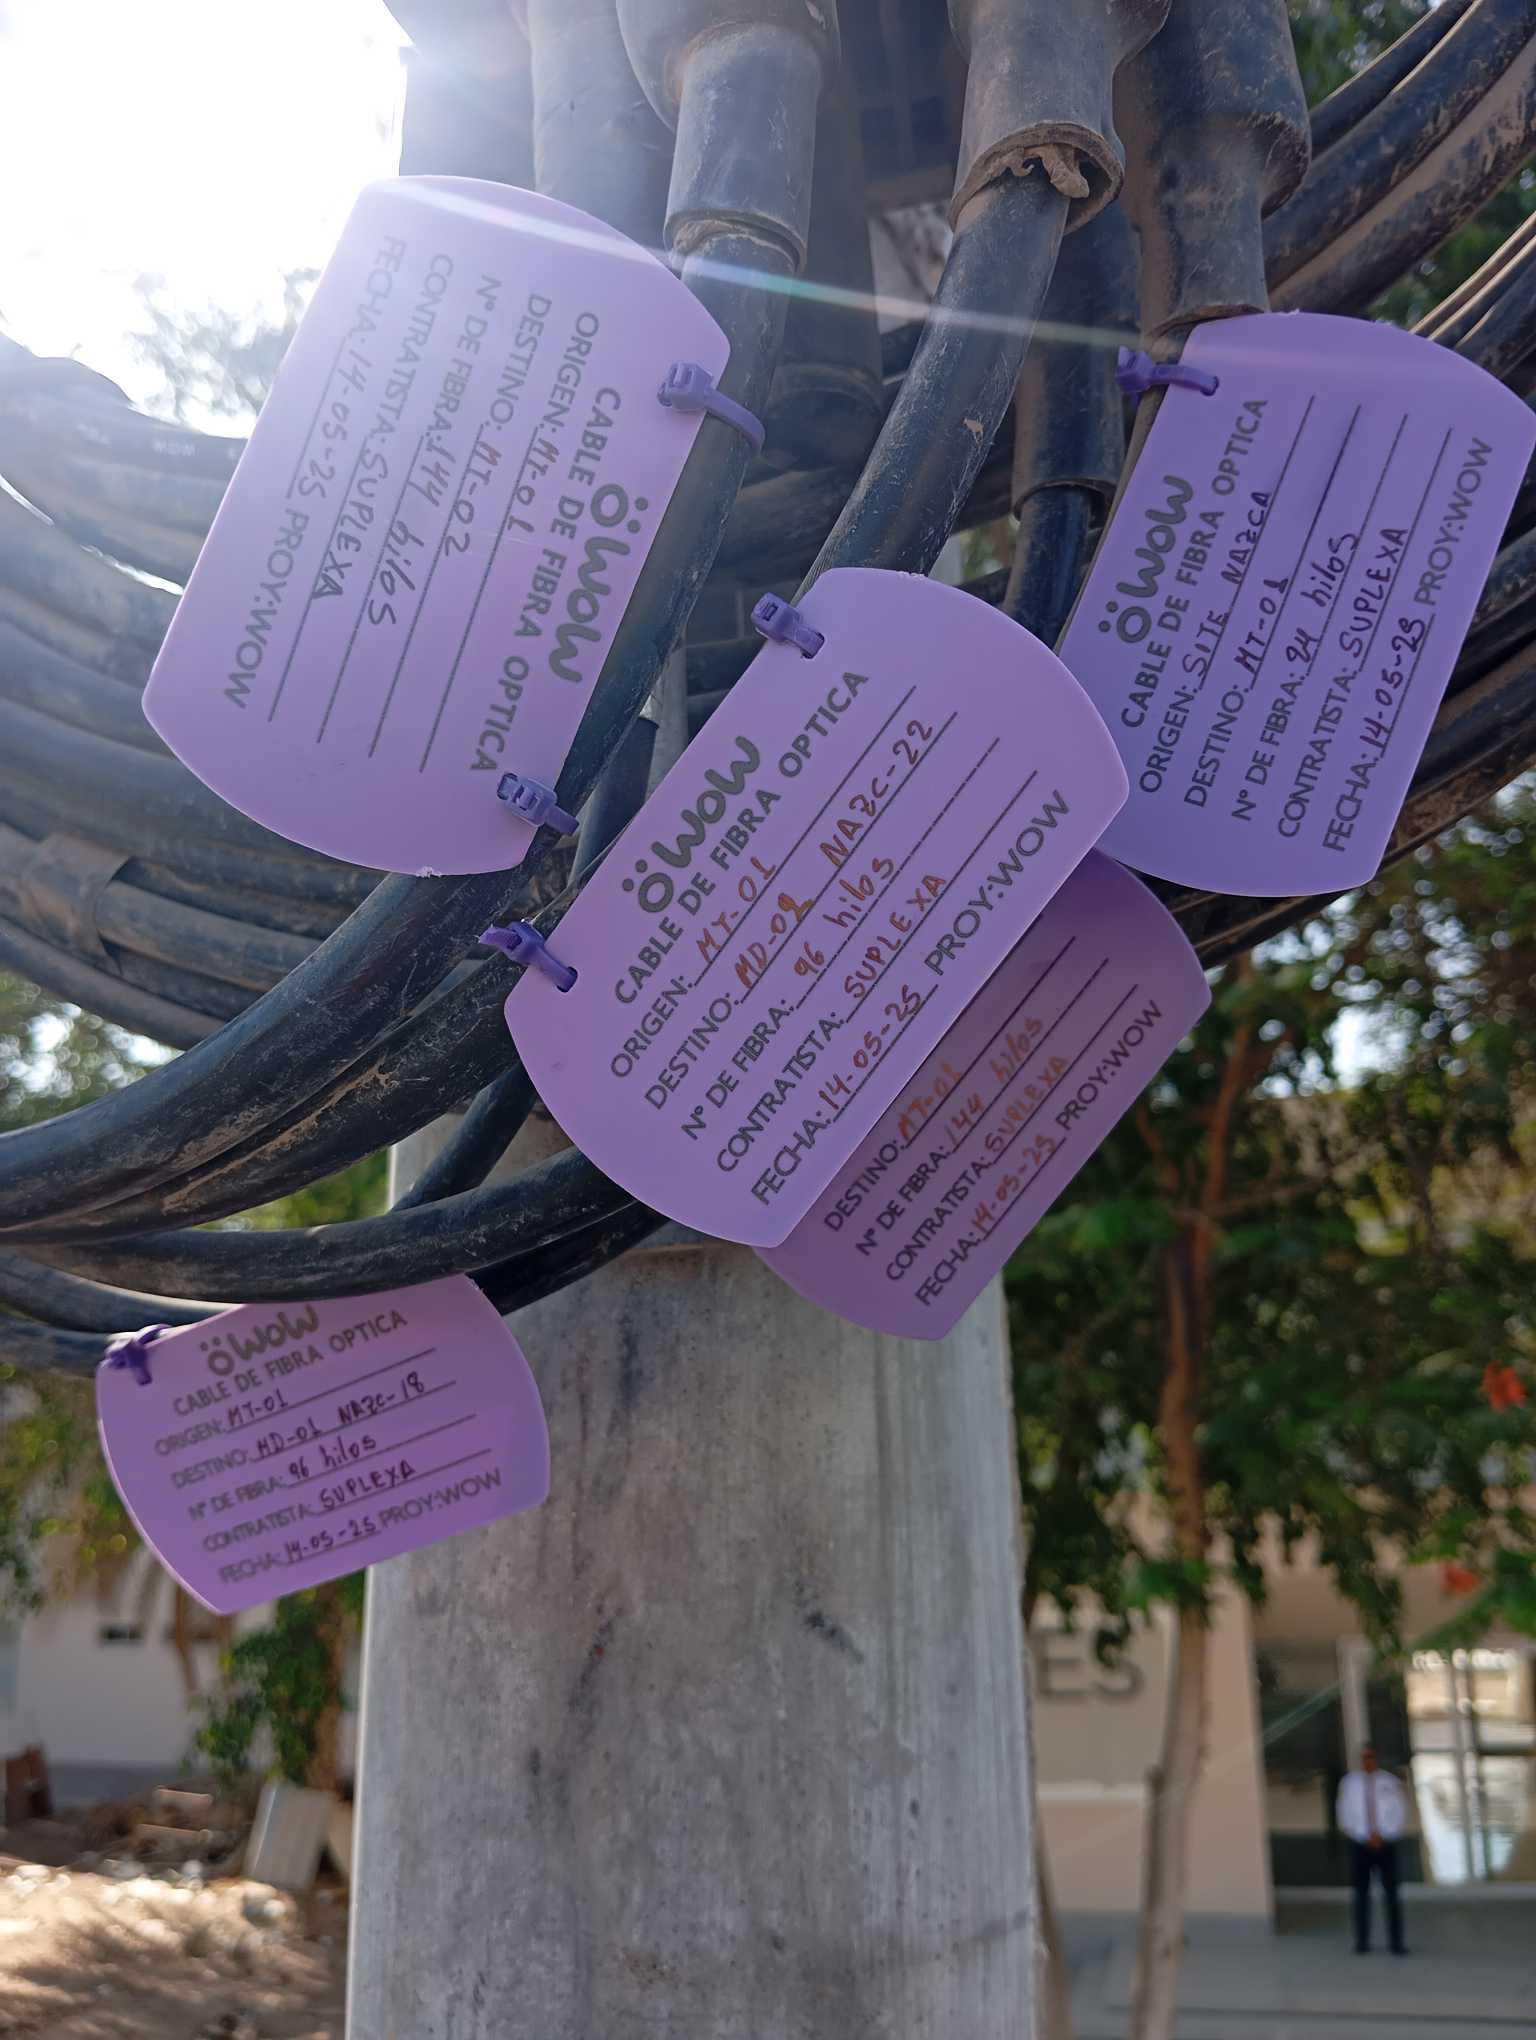 WOW
CABLE DE FIBRA OPTICA
ORIGEN: MT-01
DESTINO: MT-02
N° DE FIBRA: 144 hilos
CONTRATISTA: SUPLEXA
FECHA: 14-05-25 PROY:WOW
WOW
CABLE DE FIBRA OPTICA
ORIGEN: SITE NAZCA
DESTINO: MT-01
N° DE FIBRA: hilos
CONTRATISTA: SUPLEXA
FECHA: 14-05-25 PROY:WOW
WOW
CABLE DE FIBRA OPTICA
ORIGEN: MT-01
DESTINO: MD-02 NAZC-22
N° DE FIBRA: 96 hilos
CONTRATISTA: SUPLEXA
FECHA: 14-05-25 PROY:WOW
DESTINO: MT-01
N° DE FIBRA: 144 hilos
CONTRATISTA: SUPLEXA
FECHA: 14-05-25 PROY:WOW
WOW
CABLE DE FIBRA OPTICA
ORIGEN: MT-01
DESTINO: MD-01 NAZC-18
N° DE FIBRA: 96 hilos
CONTRATISTA: SUPLEXA
FECHA: 14-05-25 PROY:WOW
ES